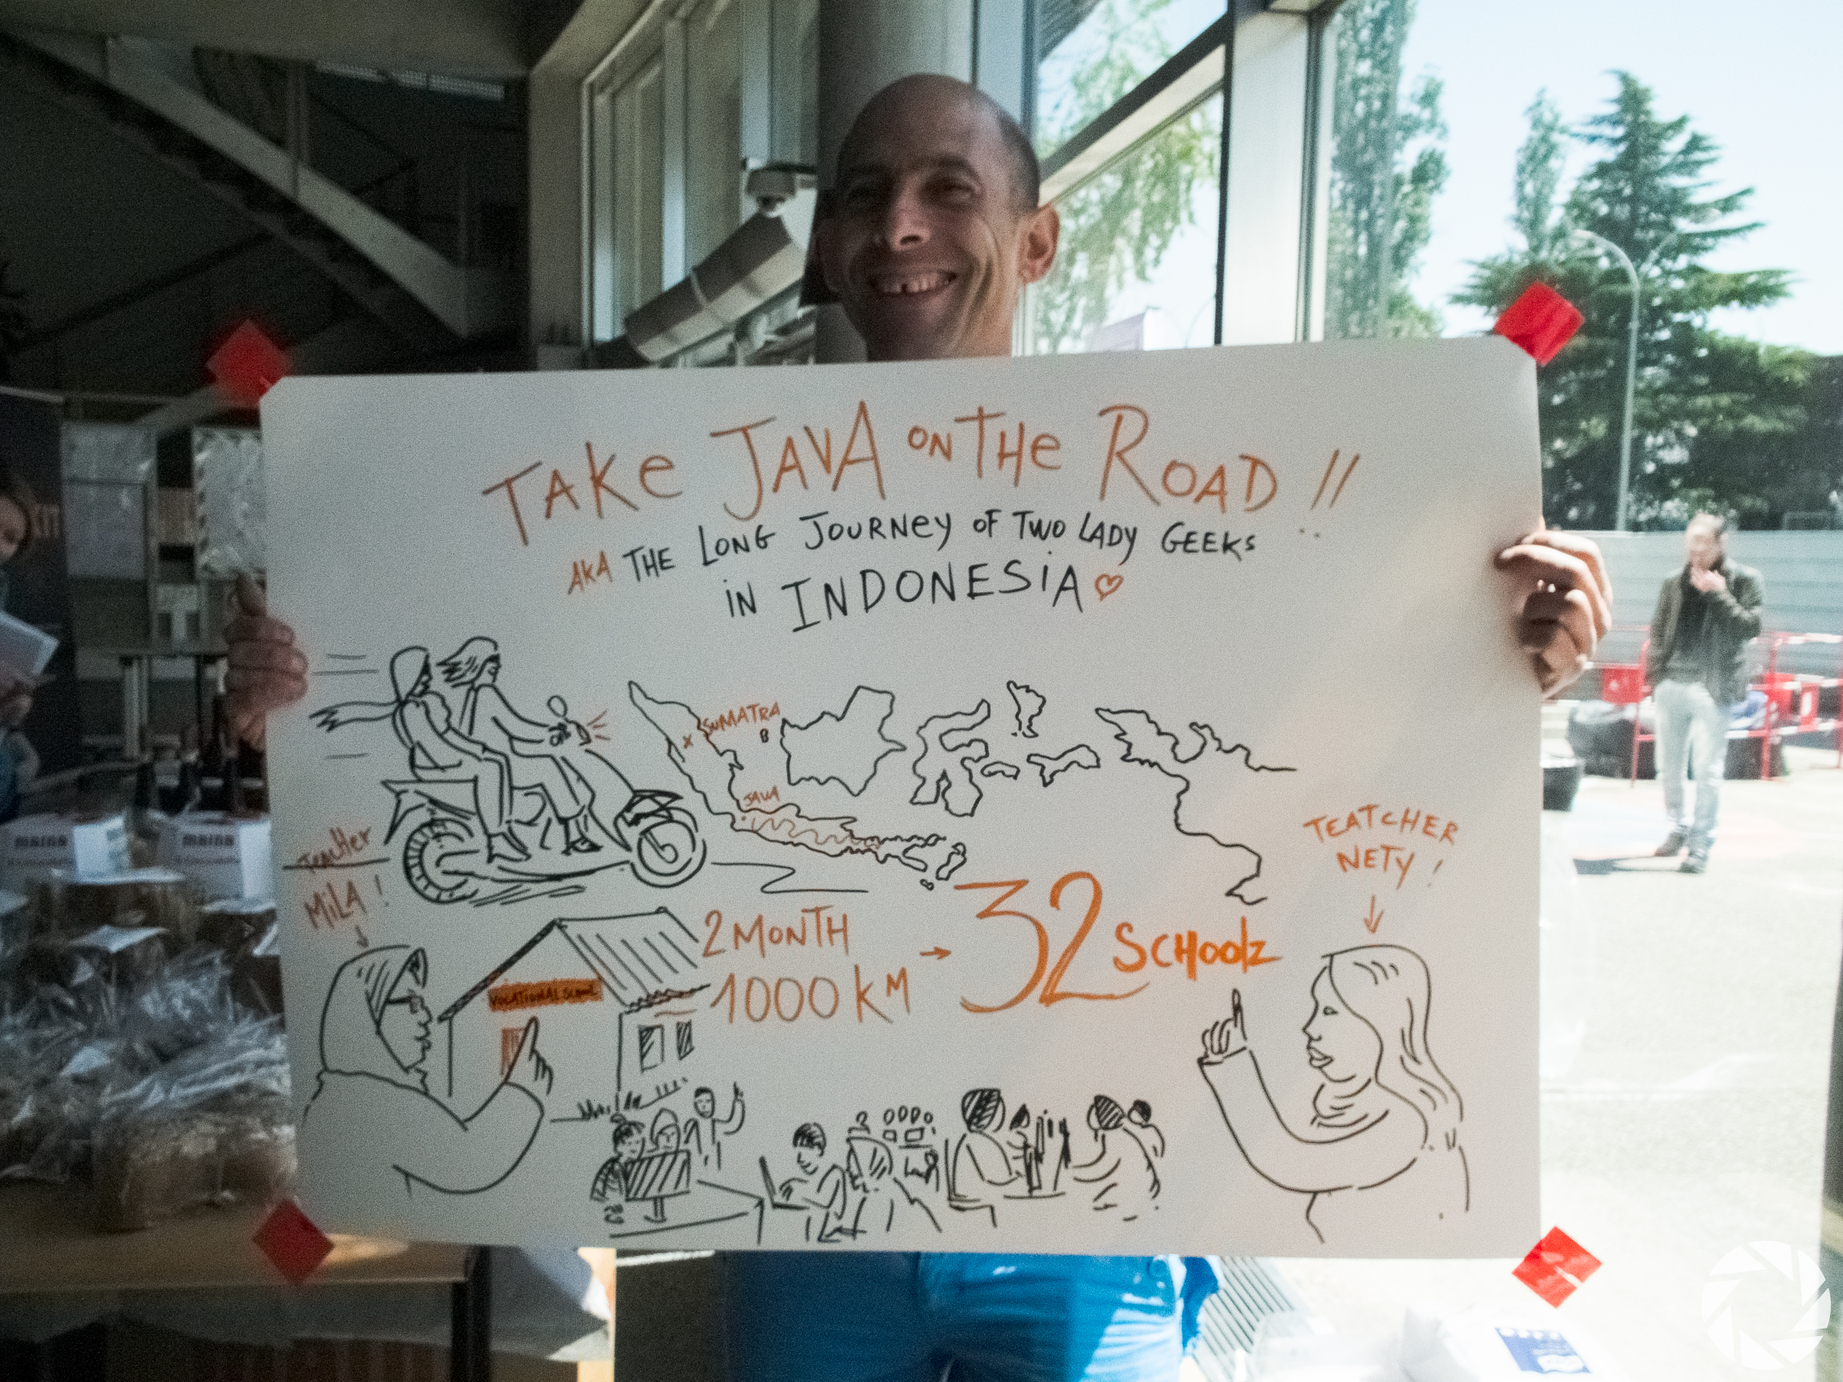 TAKE JAVA ON THE ROAD !!
AKA THE LONG JOURNEY OF TWO LADY GEEKS
iN INDONESiA
SUMATRA
JAVA
TEACHER
MiLA !
TEATCHER
NETY !
2 MONTH
1000 KM → 32 SCHOOLZ
VOCATIONAL SCHOOL